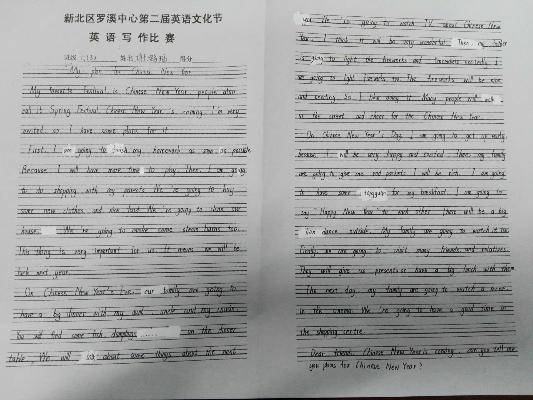 新北区罗溪中心第二届英语文化节
英语写作比赛
班级 六(3) 姓名 得分
My plan for Chinese New Year
My favourite Festival is Chinese New Year, people also
call it Spring Festival. Chinese New Year is coming. I'm very
excited, so I have some plans for it.
First, I am going to finish my homework as soon as possible.
Because I will have more time to play. Then, I am going
to do shopping with my parents. We're going to buy
some new clothes, and nice food. We're going to clean our
house. We're going to make some steam buns too.
This thing is very important for us. It means we will be
luck next year.
On Chinese New Year's Eve, our family are going to
have a big dinner with my aunt, uncle and my cousin.
You will find some fish, dumplings on the dinner
table. We will talk about some things about the next
year. We're going to watch TV about Chinese New
Year. I think it will be very wonderful. Then, my father
is going to light the fireworks and firecrackers excitedly. I
am going to light fireworks too. The fireworks will be nice
and exciting. So I like doing it. Many people will walk
in the street and cheer for the Chinese New Year.
On Chinese New Year's Day, I am going to get up early,
because I will be very happy and excited. Then my family
are going to give me red packets. I will be rich. I am going
to have some tangyuan for my breakfast. I am going to
say "Happy New Year" to each other. There will be a big
lion dance outside. My family are going to watch it too.
Finally, we are going to visit many friends and relatives.
They will give us presents or have a big lunch with them.
The next day, my family are going to watch a movie
in the cinema. We're going to have a good time in
the shopping centre.
Dear friends, Chinese New Year is coming, can you tell me
you plans for Chinese New Year?